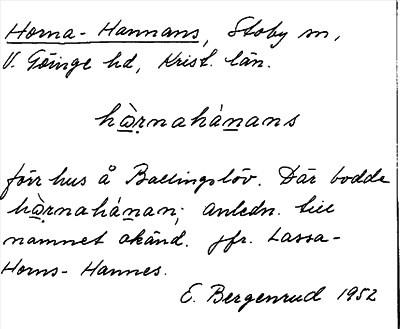 Horna-Hannans, Stoby sn,
V. Göinge hd, Krist. län.
hạ̀rnahánans
förr hus å Ballingslöv. Där bodde
hạ̀rnahánan; anledn. till
namnet okänd. Jfr. Lassa-
Horns-Hannes.
E. Bergenrud 1952